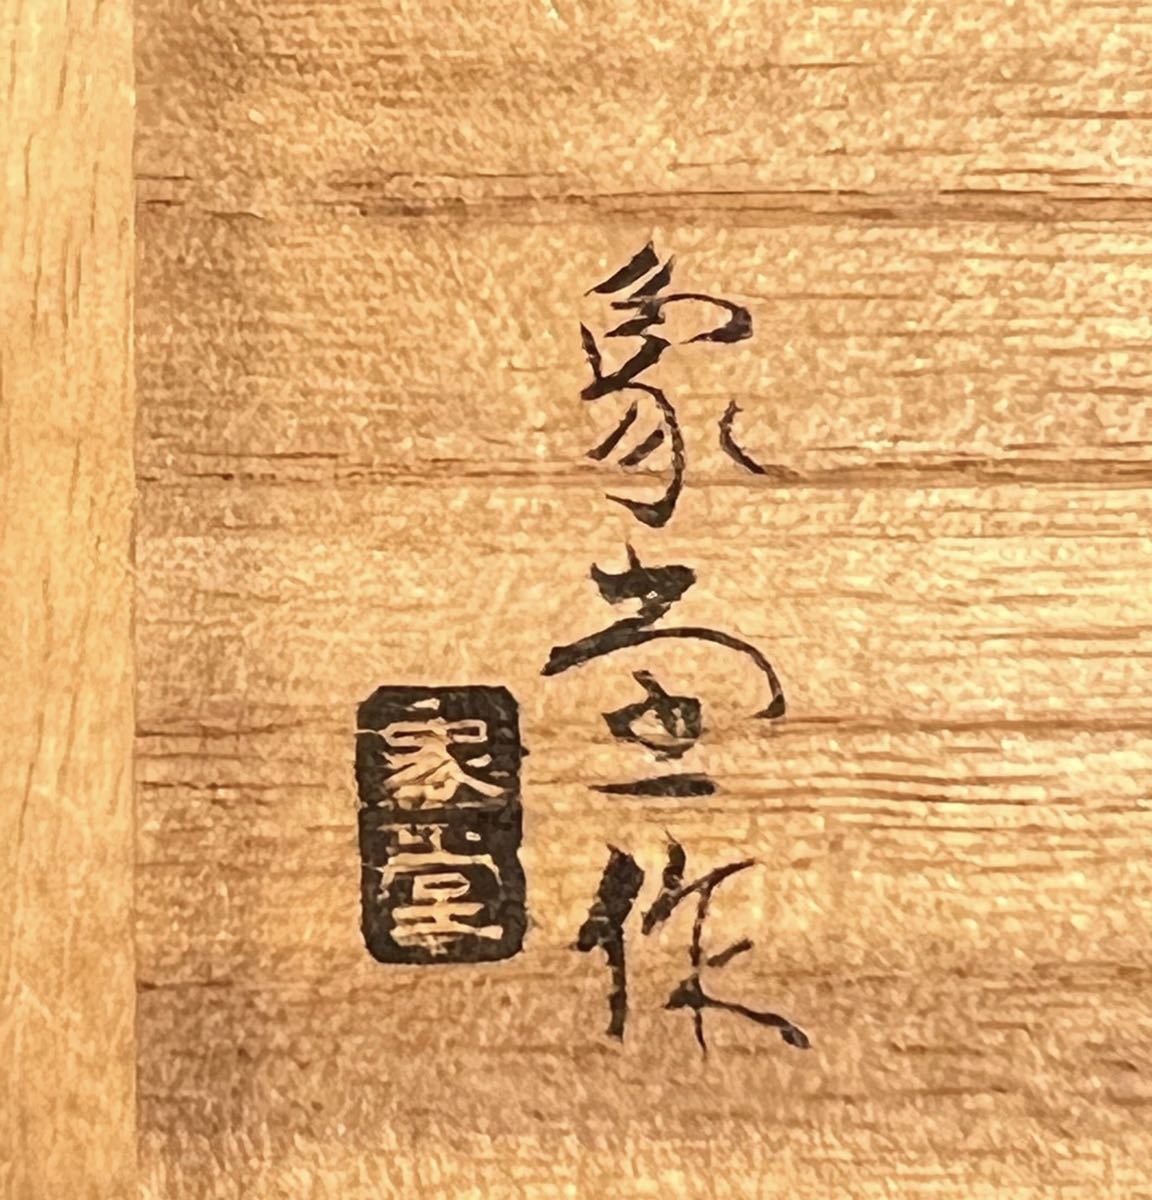 象堂作
象堂